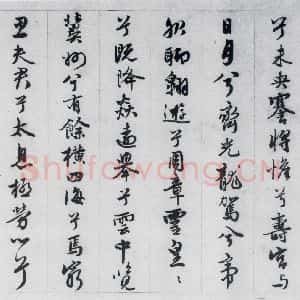 兮未央蹇將憺兮壽宮與
日月兮齊光龍駕兮帝
服聊翱遊兮周章靈皇〻
兮既降猋遠舉兮雲中覽
冀州兮有餘橫四海兮焉窮
思夫君兮太息極勞心兮
Shufawang.CN